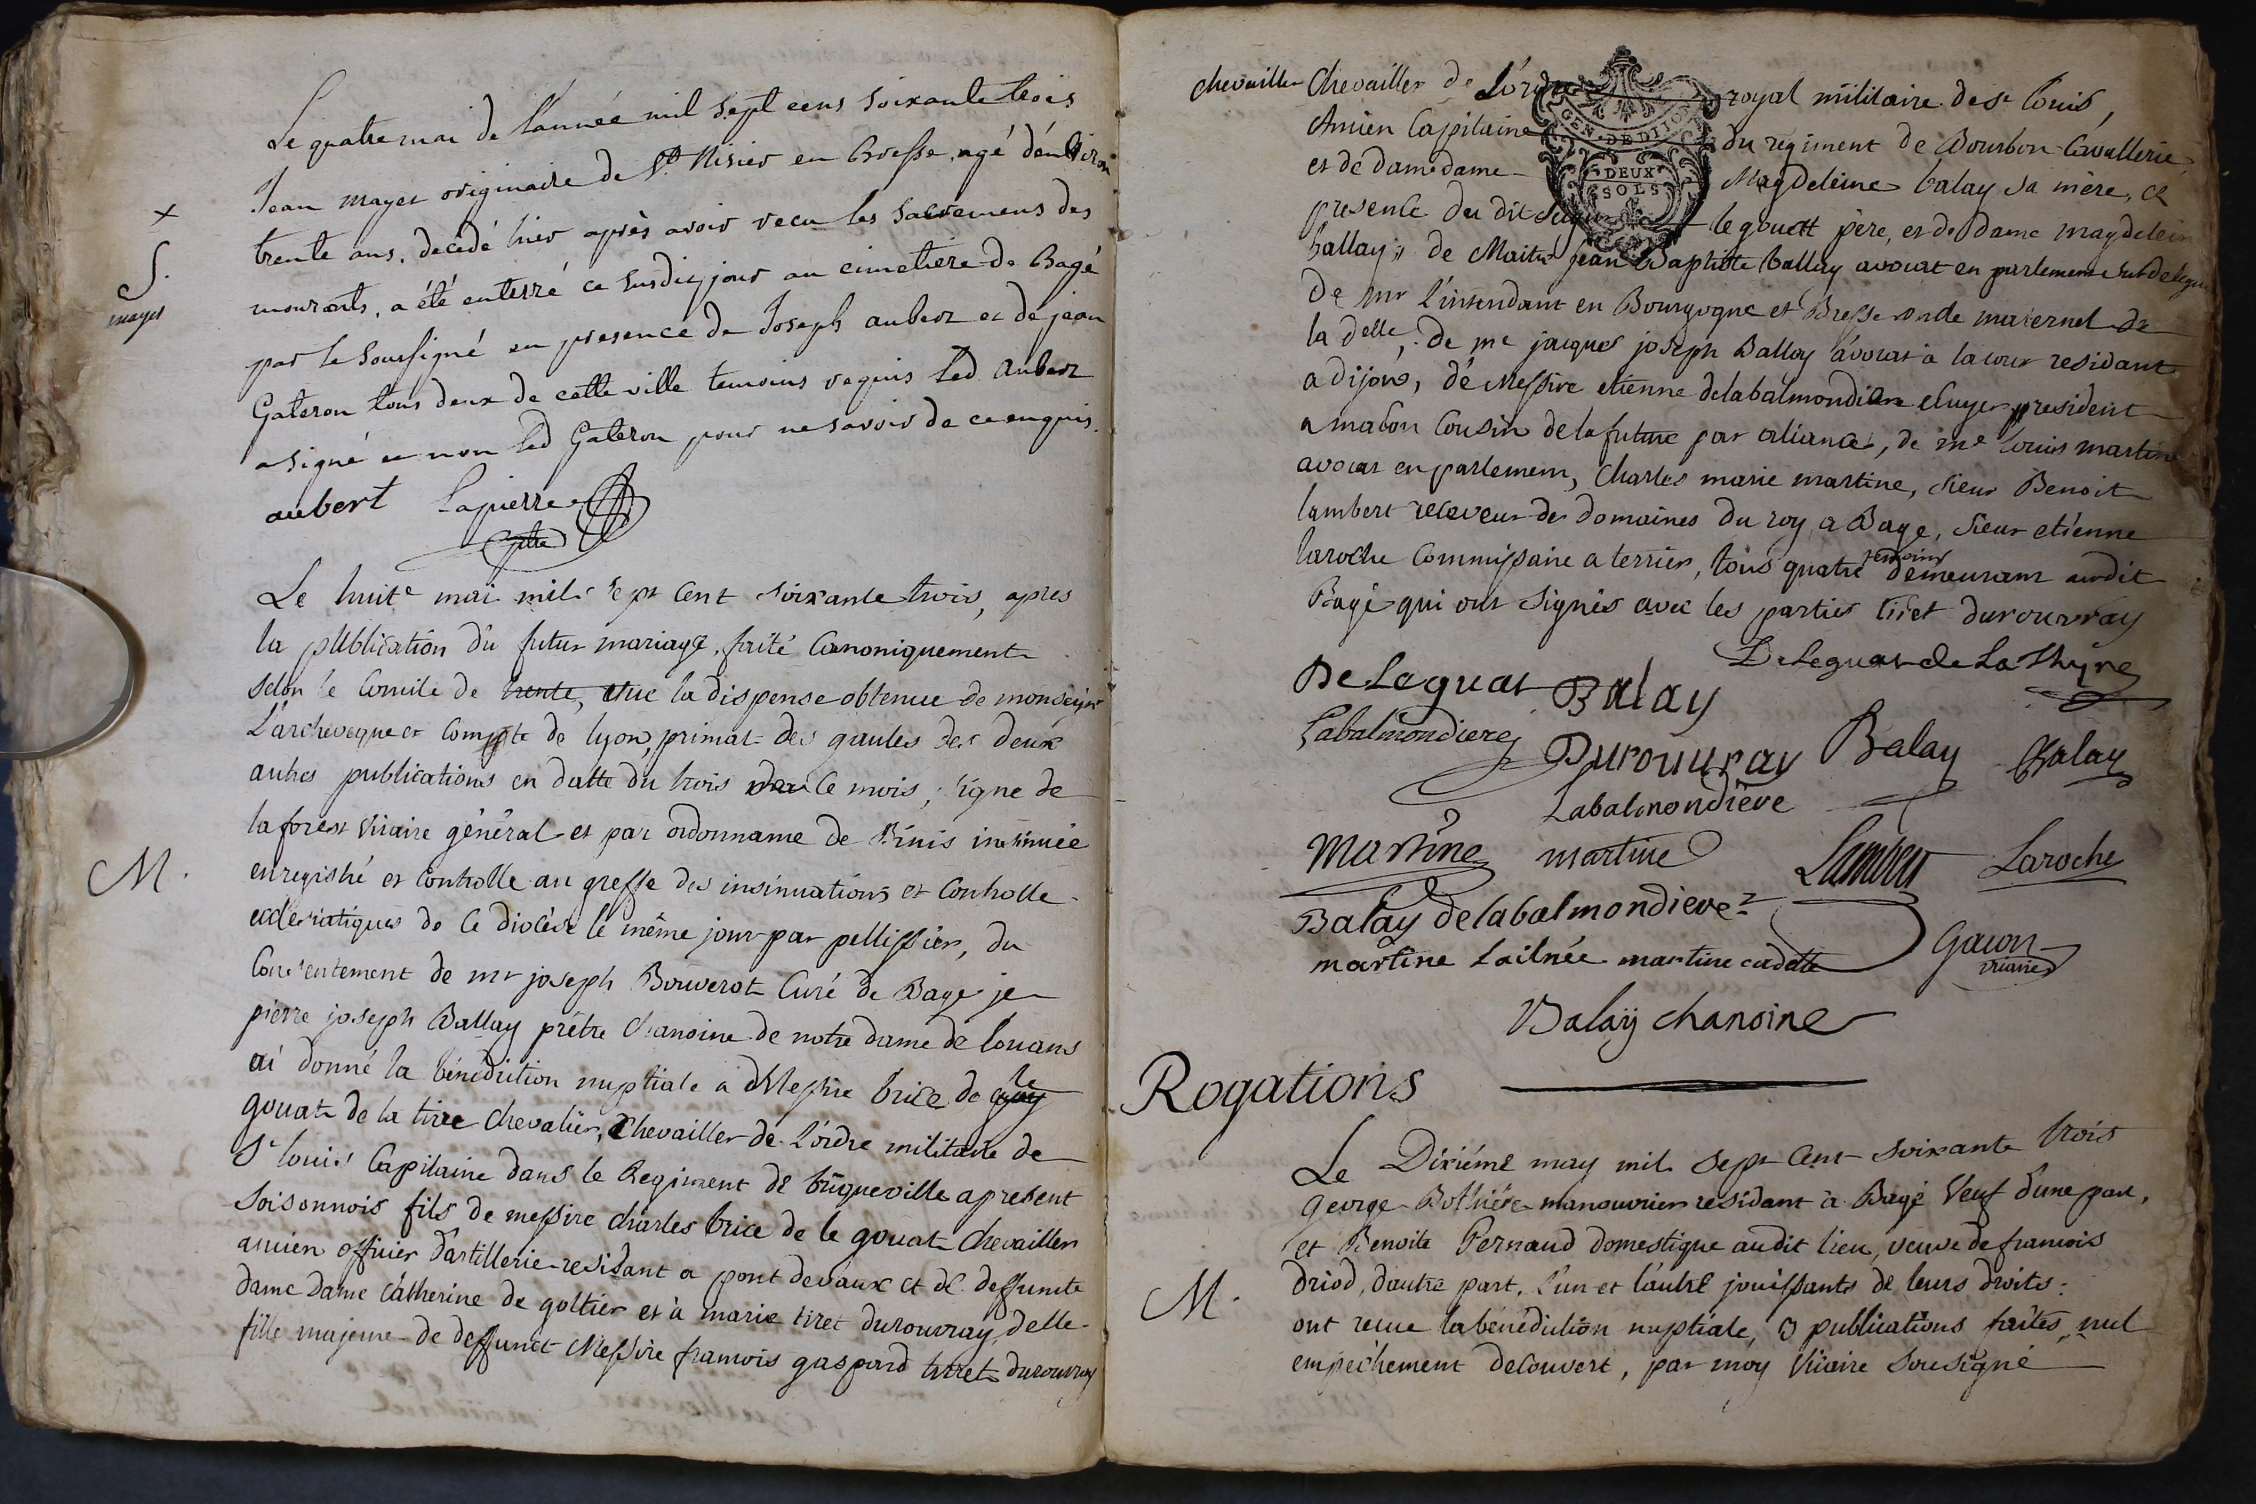 Le quatre mai de l'année mil sept cens soixante trois
Jean mayet originaire de St. Nisier en Bresse, agé d'environ
trente ans, decedé hier après avoir recu les sacremens des
mourants, a été enterré ce susdit jour au cimetiere de Bagé
par le soussigné en presence de Joseph aubert et de jean
Gateron tous deux de cette ville temoins requis led. Aubert
a signé et non led Gateron pour ne savoir de ce enquis.
aubert Lapierre
ptre
+
S.
mayet
Le huite mai mil sept cent soixante trois, apres
la publication du futur mariage, faite Canoniquement
selon le Concile de trente, vue la dispense obtenue de monseigr
L'archeveque et Compte de lyon, primat des gaules des deux
autres publications en datte du trois de ce mois, signe de
laforest Vicaire général et par ordonnance de Brinis insinuée
enregistré et Controlle au greffe des insinuations et Controlle
eccleriatiques de Ce diocèse le même jour par pellissier, du
Consentement de mr joseph Bouverot Curé de Bagé je
pierre joseph Ballay prêtre chanoine de notre dame de louans
ai donné la bénédiction nuptiale a Messire brice de le
gouat de la tire chevalier, Chevailler de L'ordre militaire de
St louis Capitaine dans le Regiment de briqueville apresent
soisonnois fils de messire charles brice de le gouat Chevailler
ancien officier d'artillerie residant a pont devaux et de deffunte
dame Dame Catherine de goltier et à marie tiret durouvray delle
fille majeure de deffunct Messire francois gaspard tiret durouvray
M.
chevailler Chevailler de L'ordre royal militaire de st louis,
Ancien Capitaine du regiment de Bourbon Cavallerie,
et de dame dame Magdeleine balay sa mère, et
presence du dit le gouatt père, et de dame magdelein
ballay, de Maitre jean Baptiste ballay avocat en parlement subdelegué
de mr L'intendant en Bourgogne et Bresse oncle maternel de
la delle, de me jacques joseph Ballay avocat à la cour residant
a dijon, de Messire etienne delabalmondiere ecuyer president
a macon Cousin de la future par aliance, de me louis martine
avocat en parlement, Charles marie martine, sieur Benoit
lambert receveur des domaines du roy a Bage, sieur etienne
laroche Commissaire a terrier, tous quatre temoins demeurant audit
Bagé qui ont signés avec les parties tiret durouvray
GEN. DE DIJON
DEUX
SOLS
De Leguat Balay DeLeguat de La Thyre
Labalmondiere Durouvray Balay Balay
Labalmondiere
Martine martine Lambert Laroche
Balay delabalmondiere
martine Lainée martine cadette Gacon
vicaire
Balaÿ chanoine
Rogations
Le Dixiéme may mil sept Cent soixante trois
george Bothiére manouvrier residant à Bagé Veuf d'une part,
et Benoite Pernaud domestique audit lieu, veuve de francois
driod, dautre part, L'un et l'autre jouissants de leurs droits:
ont recue la bénédiction nuptiale, 3 publications faites, nul
empechement decouvert, par moy Vicaire sousigné
M.